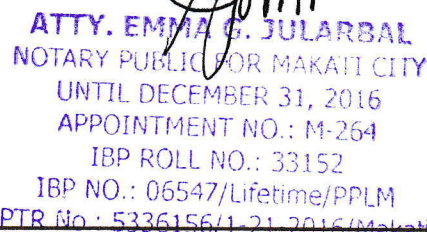 ATTY. EMMA G. JULARBAL
NOTARY PUBLIC FOR MAKATI CITY
UNTIL DECEMBER 31, 2016
APPOINTMENT NO.: M-264
IBP ROLL NO.: 33152
IBP NO.: 06547/Lifetime/PPLM
PTR No.: 5336156/1-21-2016/Makati